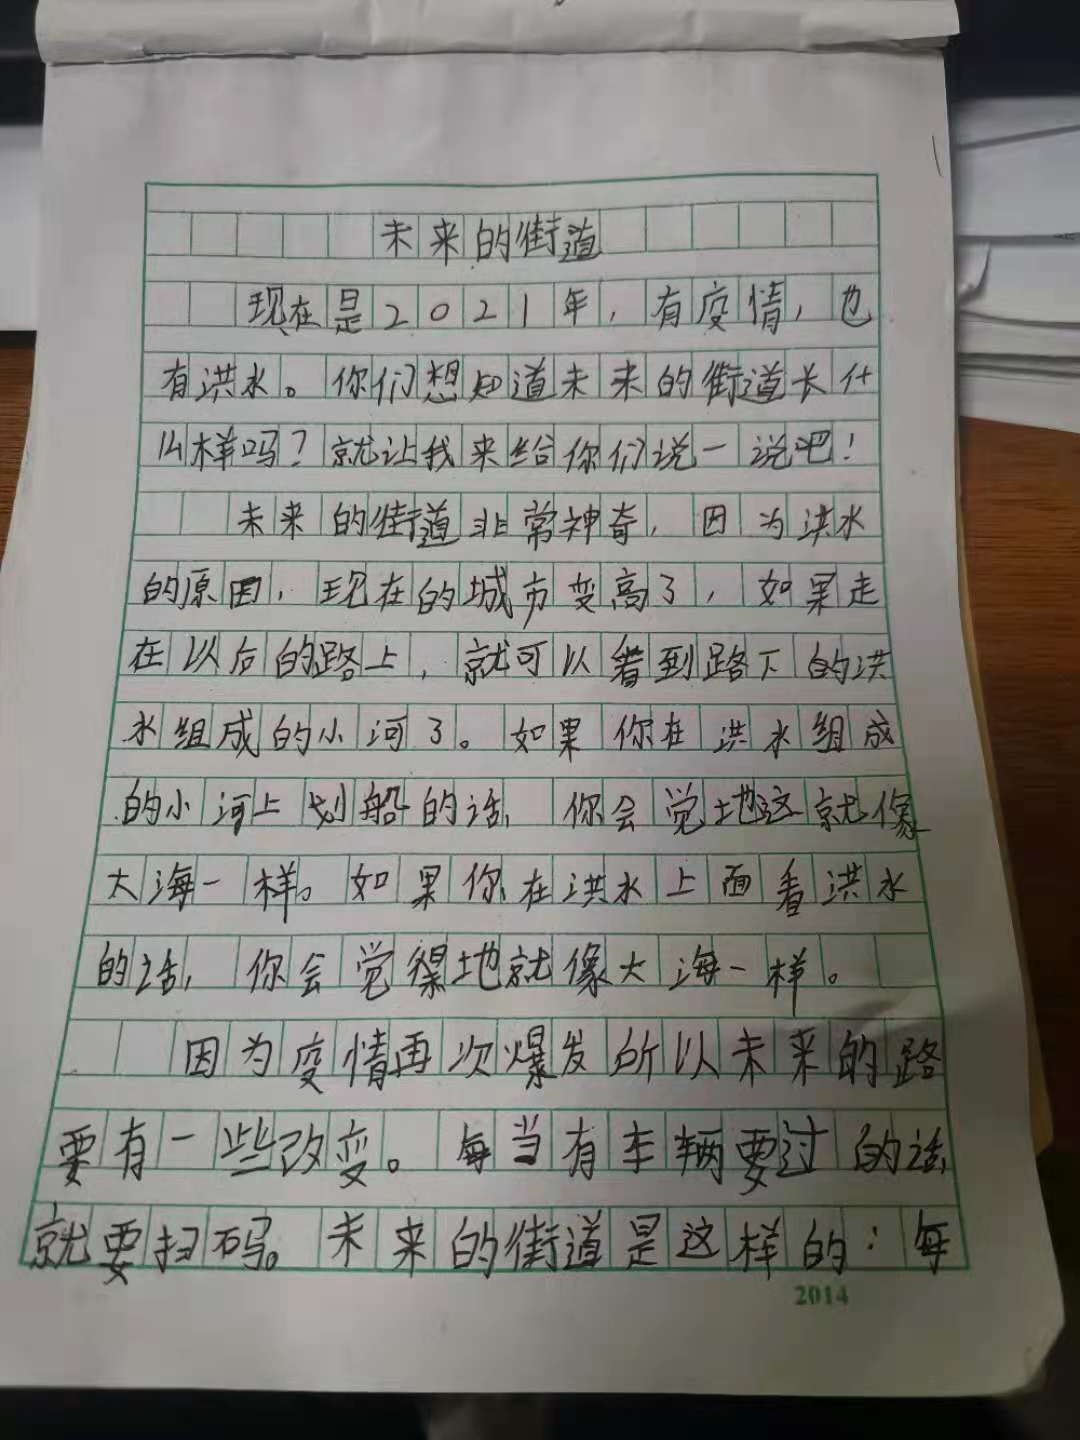 未来的街道
现在是2021年,有疫情,也
有洪水。你们想知道未来的街道长什
么样吗?就让我来给你们说一说吧!
未来的街道非常神奇,因为洪水
的原因,现在的城市变高了,如果走
在以后的路上,就可以看到路下的洪
水组成的小河了。如果你在洪水组成
的小河上划船的话,你会觉地这就像
大海一样。如果你在洪水上面看洪水
的话,你会觉得地就像大海一样。
因为疫情再次爆发所以未来的路
要有一些改变。每当有车辆要过的话,
就要扫码。未来的街道是这样的:每
2014